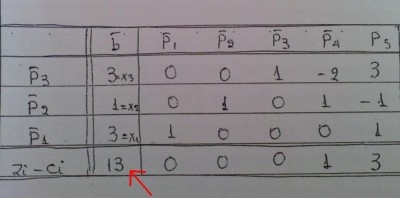 b̄ P̄₁ P̄₂ P̄₃ P̄₄ P₅
P̄₃ 3=x₃ 0 0 1 -2 3
P̄₂ 1=x₂ 0 1 0 1 -1
P̄₁ 3=x₁ 1 0 0 0 1
Zi-Ci 13 0 0 0 1 3